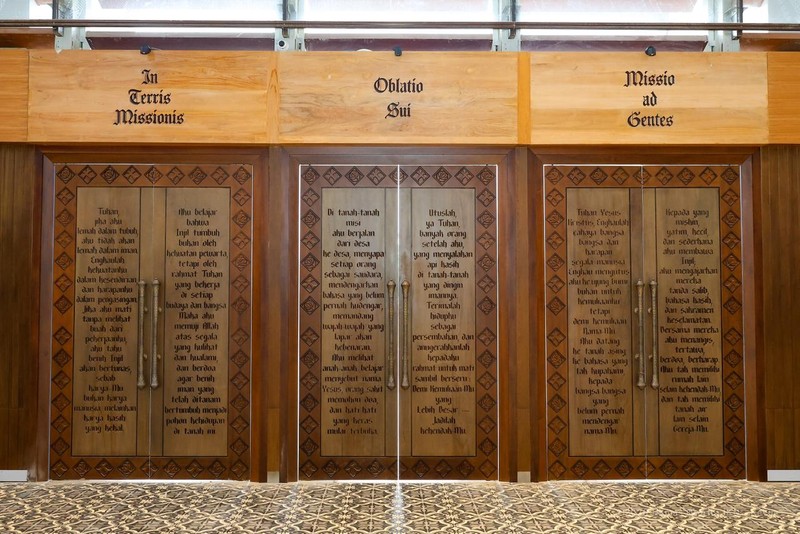 In
Terris
Missionis
Tuhan,
jika aku
lemah dalam tubuh,
aku tidak akan
lemah dalam iman.
Engkaulah
kekuatanku
dalam kesendirian
dan harapanku
dalam pengasingan.
Jika aku mati
tanpa melihat
buah dari
pekerjaanku,
aku tahu
benih Injil
akan bertunas,
sebab
karya-Mu
bukan karya
manusia, melainkan
karya kasih
yang kekal.
Aku belajar
bahwa
Injil tumbuh
bukan oleh
kekuatan pewarta,
tetapi oleh
rahmat Tuhan
yang bekerja
di setiap
budaya dan bangsa
Maka aku
memuji Allah
atas segala
yang kulihat
dan kualami,
dan berdoa
agar benih
iman yang
telah ditanam
bertumbuh menjadi
pohon kehidupan
di tanah ini
Oblatio
Sui
Di tanah-tanah
misi
aku berjalan
dari desa
ke desa, menyapa
setiap orang
sebagai saudara,
mendengarkan
bahasa yang belum
pernah kudengar,
memandang
wajah-wajah yang
lapar akan
kebenaran.
Aku melihat
anak-anak belajar
menyebut nama
Yesus, orang sakit
memohon doa,
dan hati-hati
yang keras
mulai terbuka.
Utuslah,
ya Tuhan,
banyak orang
setelah aku,
yang mengalahan
api kasih
di tanah-tanah
yang dingin
imannya.
Terimalah
hidupku
sebagai
persembahan, dan
anugerahkanlah
kepadaku
rahmat untuk mati
sambil berseru:
Demi Kemuliaan-Mu
yang
Lebih Besar
Jadilah
kehendak-Mu.
Missio
ad
Gentes
Tuhan Yesus
Kristus, Engkaulah
cahaya bangsa-
bangsa dan
harapan
segala manusia.
Engkau mengutus
aku ke ujung bumi
bukan untuk
kemuliaanku
tetapi
demi kemuliaan
Nama-Mu.
Aku datang
ke tanah asing,
ke bahasa yang
tak kupahami,
kepada
bangsa-bangsa
yang
belum pernah
mendengar
nama-Mu.
Kepada yang
miskin,
yatim, kecil,
dan sederhana
aku membawa
Injil,
aku mengajarkan
mereka
tanda salib,
bahasa kasih,
dan sakramen
keselamatan.
Bersama mereka
aku menangis,
tertawa,
berdoa, berharap.
Aku tak memiliki
rumah lain
selain kehendak-Mu
dan tak memiliki
tanah air
lain selain
Gereja-Mu.